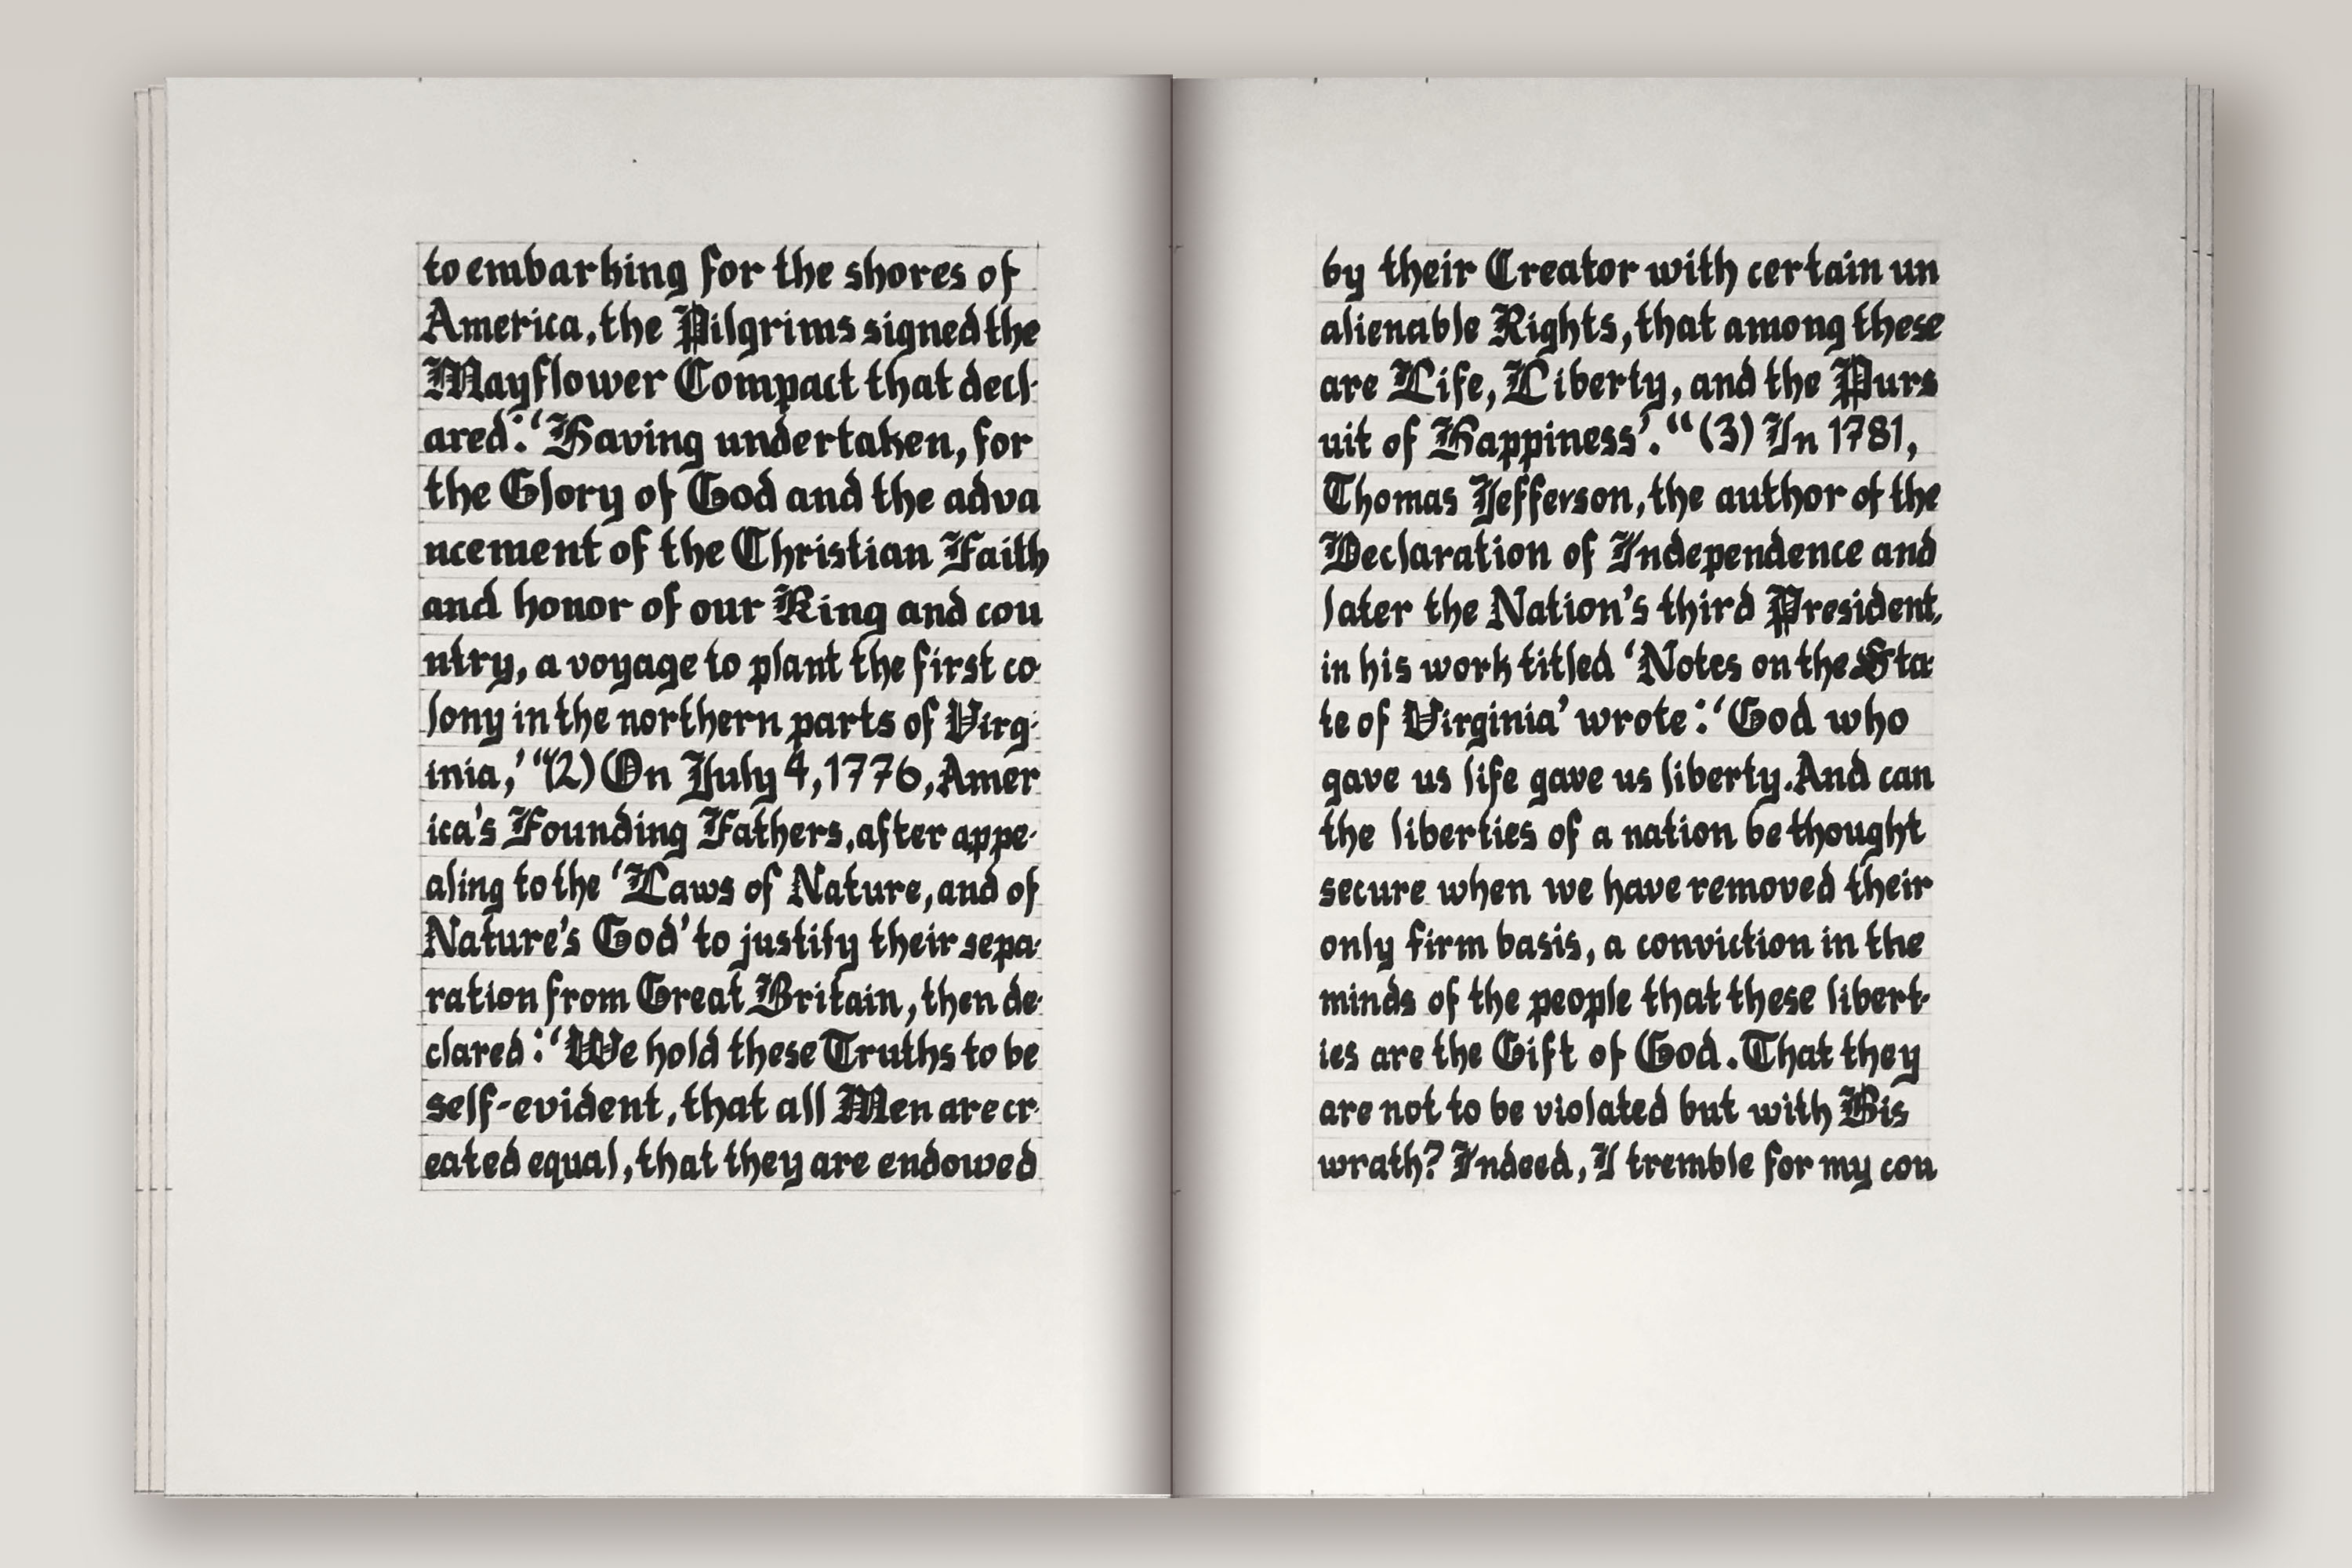 to embarking for the shores of
America, the Pilgrims signed the
Mayflower Compact that decl-
ared: 'Having undertaken, for
the Glory of God and the adva
ncement of the Christian Faith
and honor of our King and cou
ntry, a voyage to plant the first co-
lony in the northern parts of Virg-
inia,' "(2) On July 4, 1776, Amer
ica's Founding Fathers, after appe-
aling to the 'Laws of Nature, and of
Nature's God' to justify their sepa-
ration from Great Britain, then de-
clared: 'We hold these Truths to be
self-evident, that all Men are cr-
eated equal, that they are endowed
by their Creator with certain un
alienable Rights, that among these
are Life, Liberty, and the Purs
uit of Happiness'. "(3) In 1781,
Thomas Jefferson, the author of the
Declaration of Independence and
later the Nation's third President,
in his work titled 'Notes on the Sta-
te of Virginia' wrote: 'God who
gave us life gave us liberty. And can
the liberties of a nation be thought
secure when we have removed their
only firm basis, a conviction in the
minds of the people that these libert-
ies are the Gift of God. That they
are not to be violated but with His
wrath? Indeed, I tremble for my cou